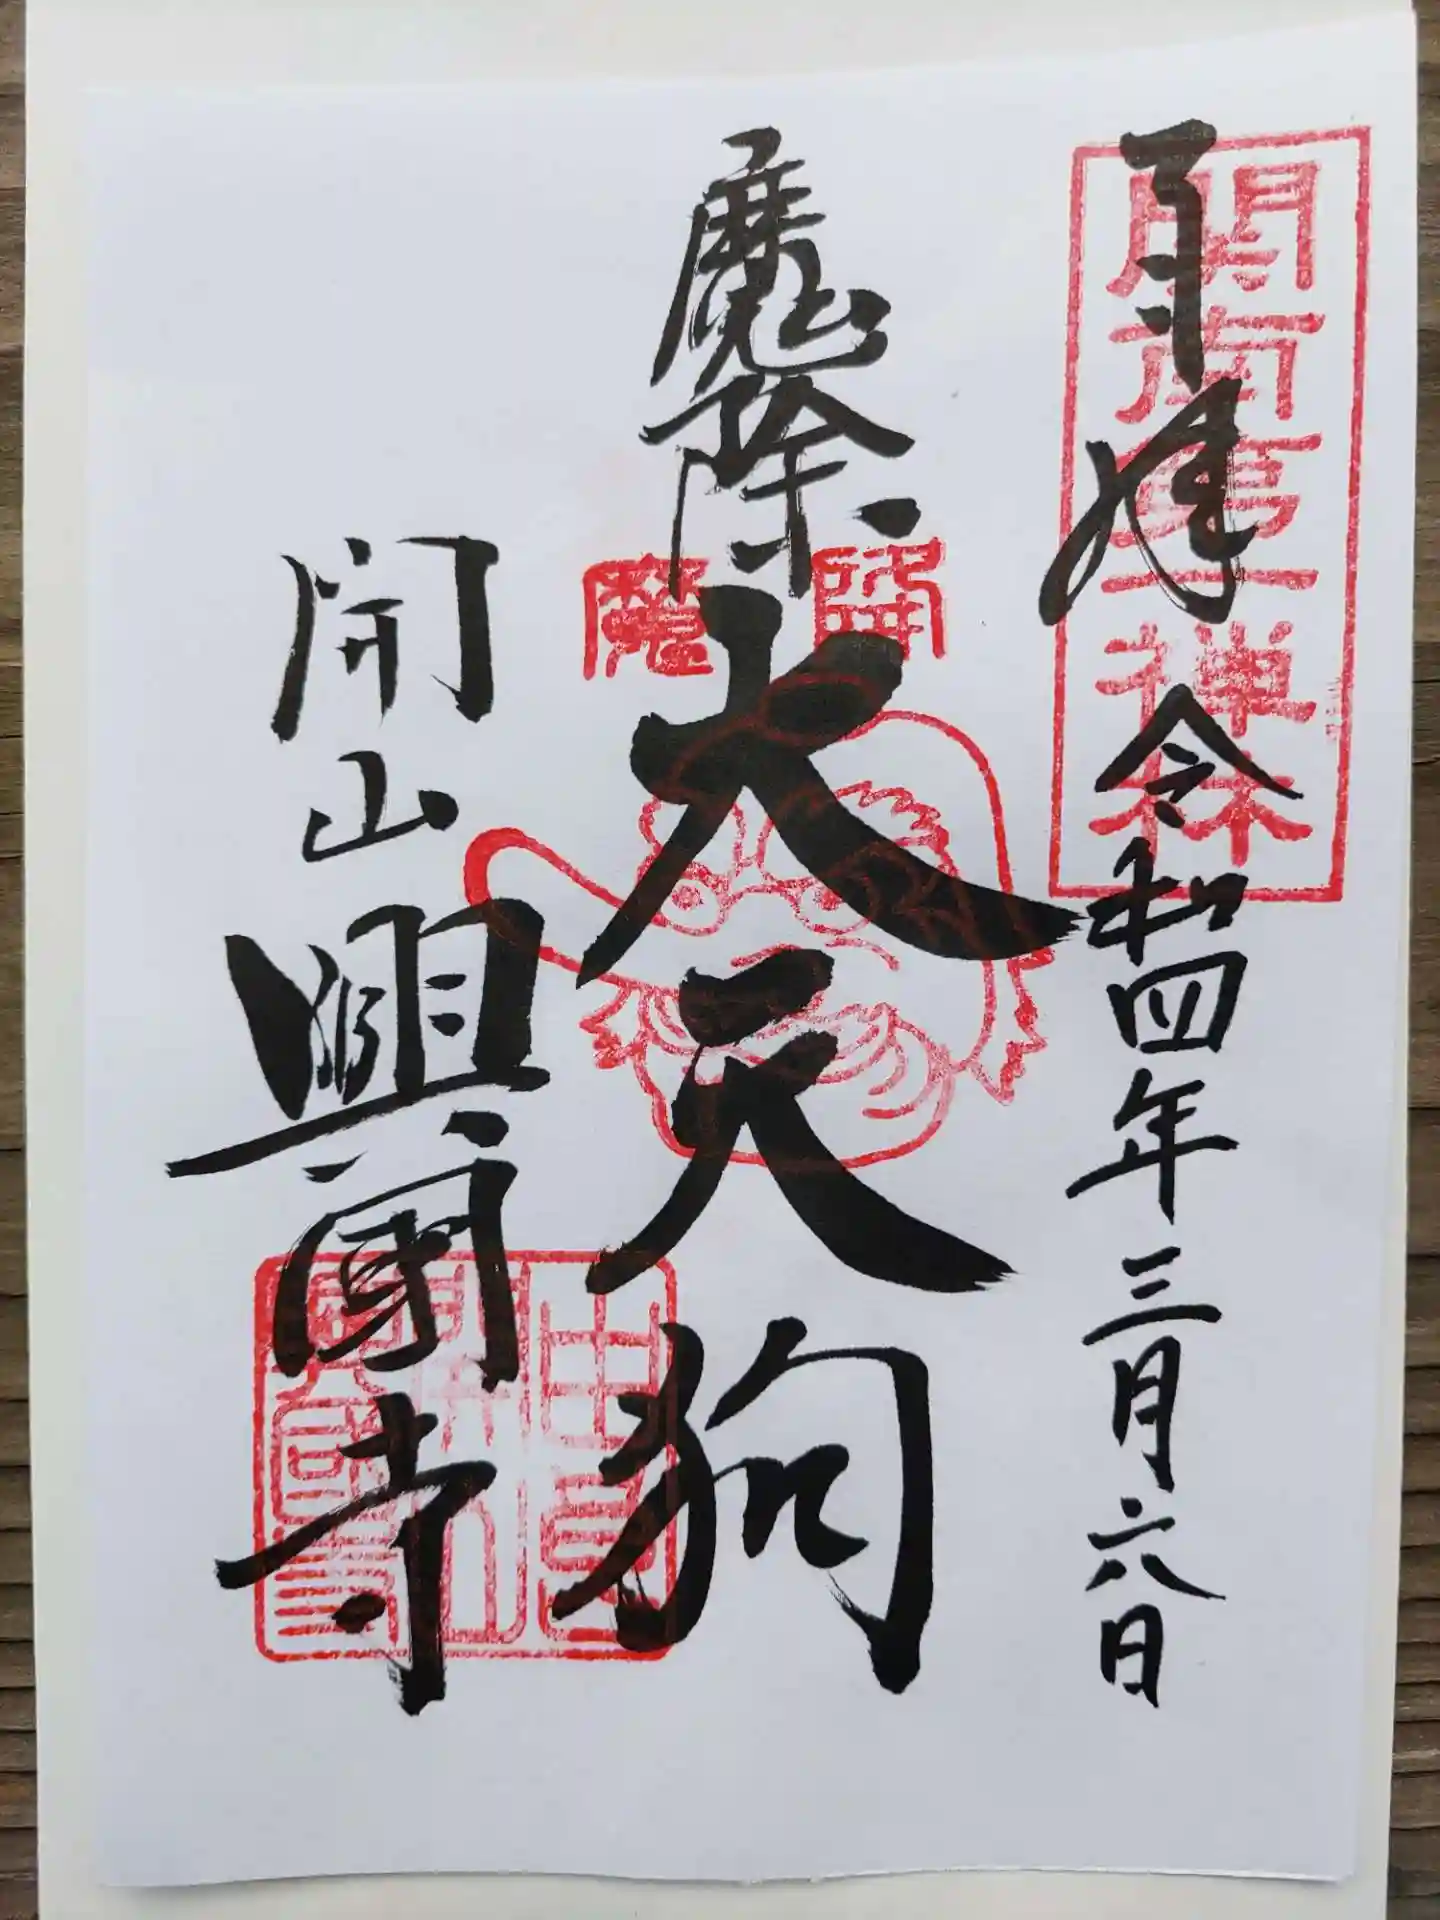 奉拝
令和四年三月六日
関南第一禅林
魔除
大天狗
降魔
開山
興国寺
由良
開山
興國寺